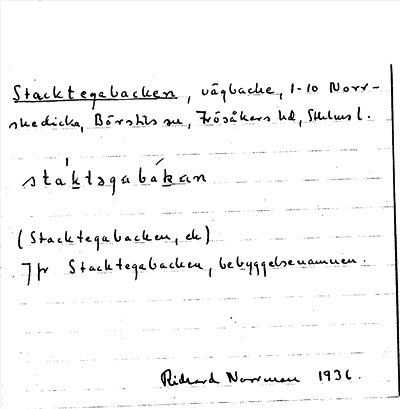 Stacktegabacken, vägbacke, 1-10 Norr-
skedicka, Börstils sn, Frösåkers hd, Sthlms l.
stáktəgabákan
(Stacktegabacken, ek)
Jfr Stacktegabacken, bebyggelsenamnen.
Richard Norrman 1936.